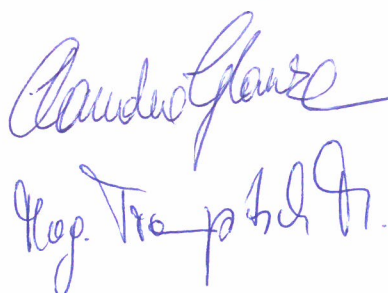 Claudia Glanze
Mag. Trampitsch M.